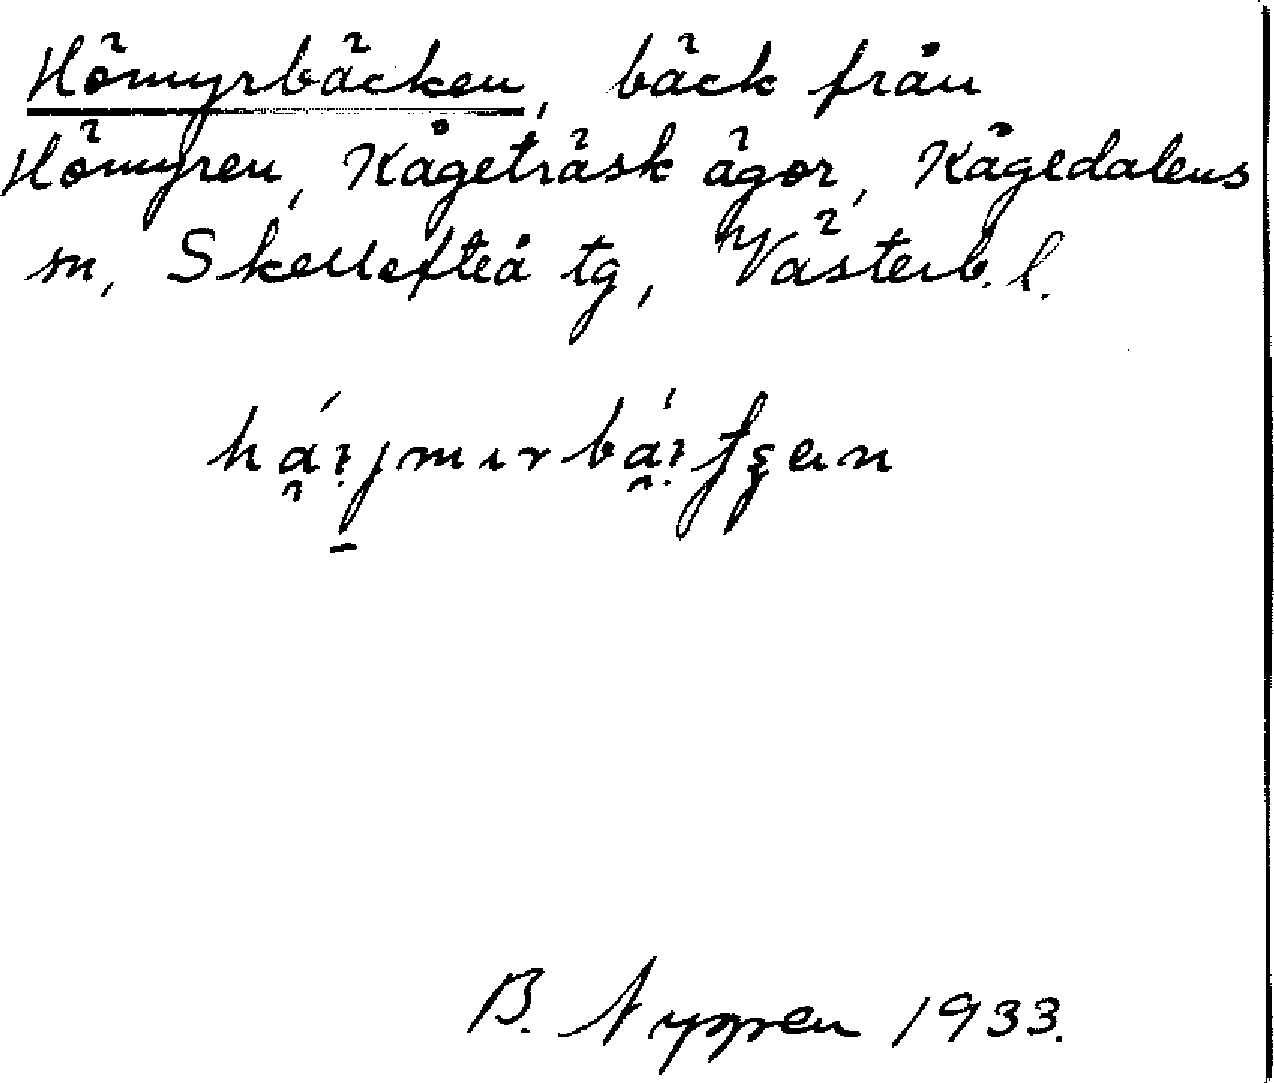 Hömyrbäcken, bäck från
Hömyren, Kågeträsk ägor, Kågedalens
sn, Skellefteå tg, Västerb. l.
B. Nygren 1933.